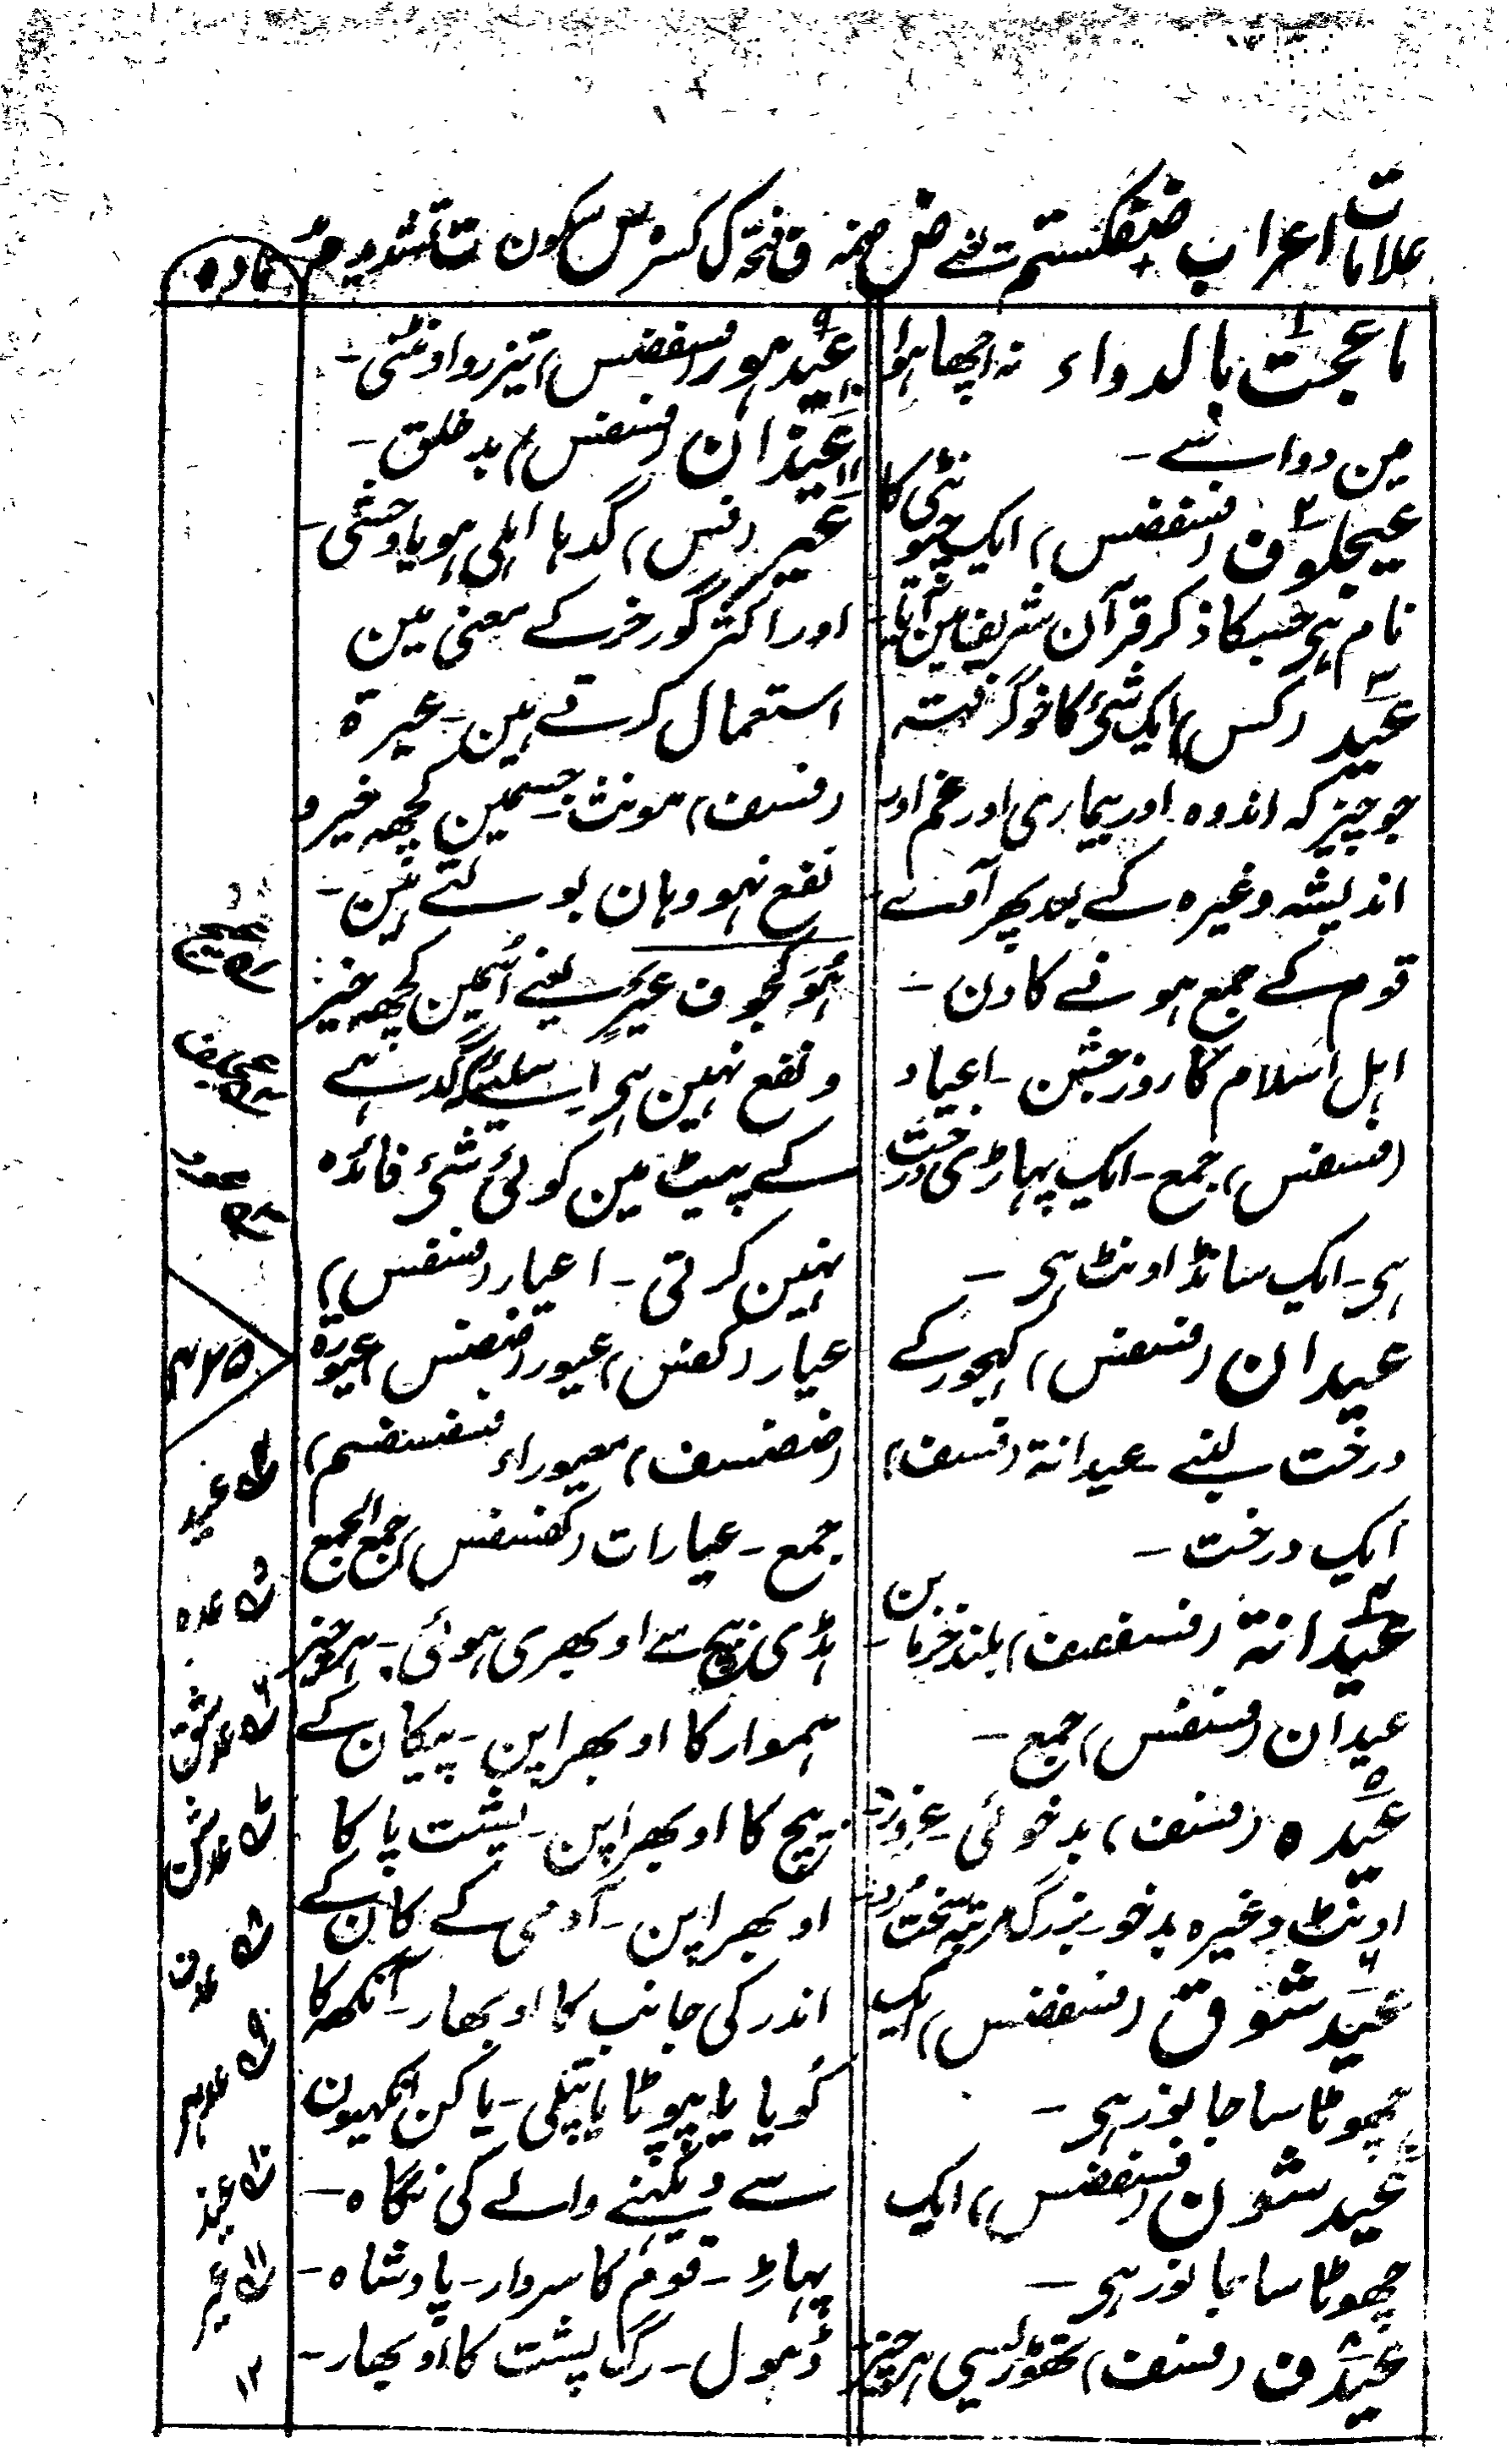 علامات اعراب ضفکستم ت یعنے ض ضمہ ف فتحہ ک کسرہ س سکون ت تشدید م مد
مادہ
ما عجت بالدواء نہ اچھا ہوا
مین دوا سے -
عیجلوف (فسفضس) ایک چیونٹی کا
نام ہی جسکا ذکر قرآن شریف مین آیا
عید (کس) ایک شئ کا خوگرفتہ
جو چیز کہ اندوہ اور بیماری اور غم اور
اندیشہ وغیرہ کے بعد پھر آئے
قوم کے جمع ہونے کا دن -
اہل اسلام کا روز جشن - اعیاد
(فسفس) جمع - ایک پہاڑی درخت
ہی - ایک سانڈ اونٹ ہی -
عیدان (فسفس) کہجور کے
درخت لبنے - عیدانة (فسف)
ایک درخت -
عیدانة (فسففف) بلند خرما بن -
عیدان (فسفس) جمع -
عیدہ (فسف) بدخوئی - غرور
اونٹ وغیرہ بدخو - بزرگ مرتبہ سخت مرد
عیدشوق (فسفضس) ایک
چھوٹا سا جانور ہی -
عیدشون (فسفضس) ایک
چھوٹا سا جانور ہی -
عیدف (فسف) تھوڑیسی ہر چیز
عیدہور (فسفضس) تیز رو اونٹنی -
عیذان (فسفس) بدخلق -
عیر (فس) گدہا اہلی ہو یا وحشی -
اور اکثر گورخر کے معنی مین
استعمال کرتے ہین - عیرة
(فسف) مونث - جسمین کچھ خیر و
نفع نہو وہان بولتے ہین -
ہو کجوف عیر یعنے اسمین کچھ خیر
و نفع نہین ہی اسلیئے کہ گدہے
کے پیٹ مین کوئی شئ فائدہ
نہین کرتی - اعیار (فسفس)
عیار (کفس) عیور (ضضس) عیورة
(ضضسف) معیوراء (فسضسفسم)
جمع - عیارات (کفسفس) جمع الجمع
ہڈی بیچ سے اوبھری ہوئی - ہر چیز
ہموار کا اوبھراپن - پیکان کے
بیچ کا اوبھراپن - پشت پا کا
اوبھراپن - آدمی کے کان کے
اندر کی جانب کا اوبھار - آنکھ کا
کویا یا پپوٹا یا پتلی - یا کن انکھیون
سے دیکہنے والے کی نگاہ -
پہاڑ - قوم کا سردار - پادشاہ -
ڈہول - رگ پشت کا اوبھار -
عید
عدہ
عدشق
عدشن
عدف
عدہر
عیذ
عیر
۱۲